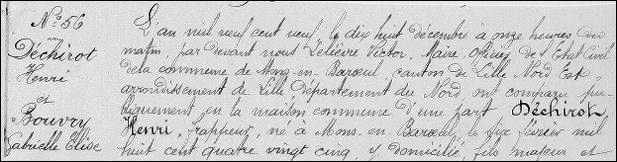 N° 56
Déchirot
Henri
et
Bouvry
Gabrielle Elise
L'an mil neuf cent neuf, le dix huit Décembre à onze heures du
matin, par devant nous Lelièvre Victor, Maire, Officier de l'Etat Civil
de la commune de Mons-en-Barœul, canton de Lille Nord Est,
arrondissement de Lille, Département du Nord, ont comparu pu-
bliquement en la maison commune d'une part Déchirot
Henri, frappeur, né à Mons-en-Barœul, le six février mil
huit cent quatre vingt cinq, y domicilié, fils majeur et